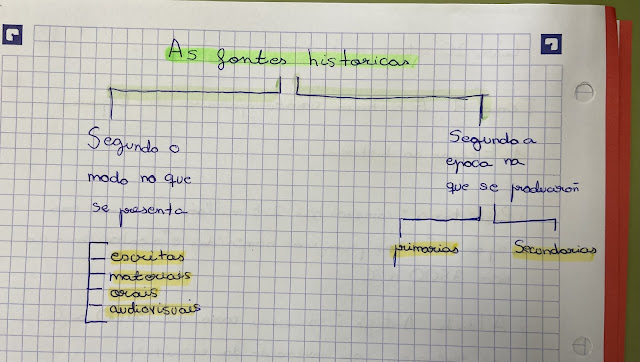 As fontes historicas
Segundo o
modo no que
se presenta
escritas
materiais
orais
audiovisuais
Segundo a
epoca na
que se producirón
primarias
Secondarias